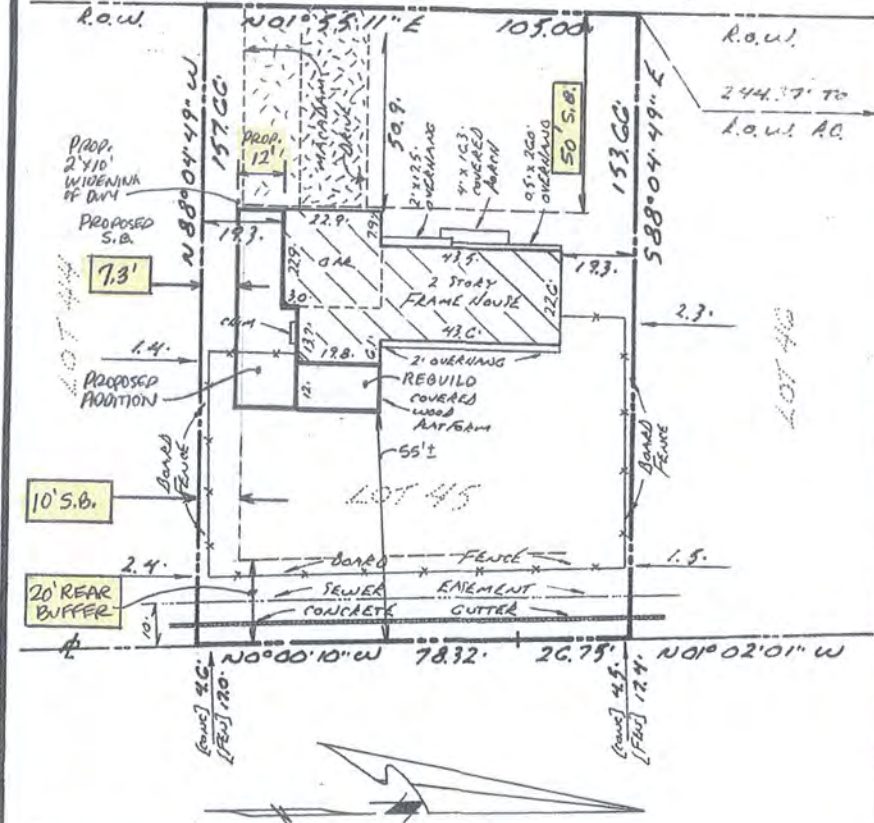 R.O.W.
N 01° 55' 11" E
105.00'
R.O.W.
244.37' TO
R.O.W. P.C.
N 88° 04' 49" W
157.66'
PROP. 12'
MACADAM DRIVE
50.9'
2' X 12.5' OVERHANG
4' X 16.3' COVERED PORCH
0.5' X 26.0' OVERHANG
50' S.B.
153.66'
S 88° 04' 49" E
PROP.
2'X10'
WIDENING
OF DWY
PROPOSED
S.B.
7.3'
19.3'
22.9'
7.9'
22.9'
GAR
43.5'
2 STORY
FRAME HOUSE
22.6'
19.3'
3.0'
CHIM
13.7'
19.8'
6.1'
43.6'
2' OVERHANG
2.3'
LOT 44
1.4'
PROPOSED
ADDITION
12'
REBUILD
COVERED
WOOD
PLATFORM
LOT 46
BOARD FENCE
55'±
BOARD FENCE
10' S.B.
LOT 45
2.4'
BOARD FENCE
1.5'
20' REAR
BUFFER
SEWER EASEMENT
10'
CONCRETE GUTTER
N 0° 00' 10" W
78.32'
26.75'
N 01° 02' 01" W
[CONC] 4.6'
[FEN] 12.0'
[CONC] 4.5'
[FEN] 12.4'